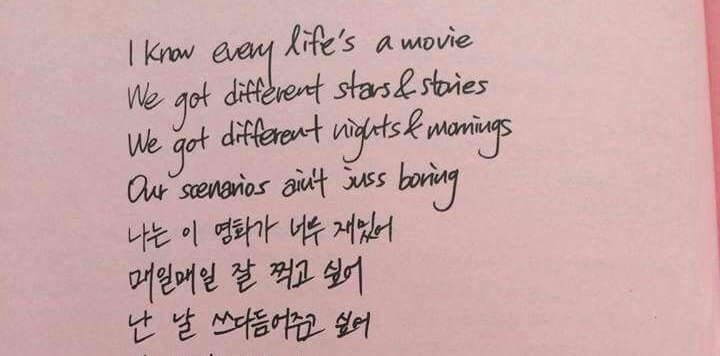 I know every life's a movie
We got different stars & stories
We got different nights & mornings
Our scenarios ain't juss boring
나는 이 영화가 너무 재밌어
매일매일 잘 찍고 싶어
난 날 쓰다듬어주고 싶어